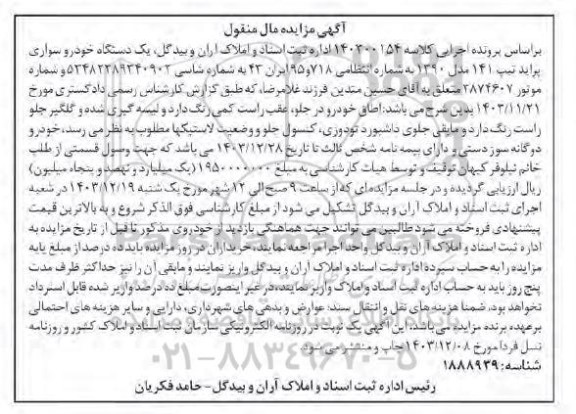 آگهی مزایده مال منقول
براساس پرونده اجرایی کلاسه ۱۴۰۳۰۰۱۵۴ اداره ثبت اسناد و املاک آران و بیدگل، یک دستگاه خودرو سواری
پراید تیپ ۱۴۱ مدل ۱۳۹۰ به شماره انتظامی ۷۱۸و۹۵ ایران ۴۳ به شماره شاسی و شماره
موتور ۳۸۷۴۶۰۷ متعلق به آقای حسین متدین فرزند غلامرضا، که طبق گزارش کارشناس رسمی دادگستری مورخ
۱۴۰۳/۱۱/۲۱ بدین شرح می باشد: اطاق خودرو در جلو، عقب راست کمی رنگ دارد و لیسه گیری شده و گلگیر جلو
راست رنگ دارد و مابقی جلوی داشبورد تودوزی، کنسول جلو و وضعیت لاستیکها مطلوب به نظر می رسد، خودرو
دوگانه سوز دستی و دارای بیمه نامه شخص ثالث تا تاریخ ۱۴۰۳/۱۲/۲۸ می باشد که جهت وصول قسمتی از طلب
خانم نیلوفر کیهان توقیف و توسط هیات کارشناسی به مبلغ ۱۹۵۰۰۰۰۰۰۰ (یک میلیارد و نهصد و پنجاه میلیون)
ریال ارزیابی گردیده و در جلسه مزایده ای که از ساعت ۹ صبح الی ۱۲ شهر مورخ یک شنبه ۱۴۰۳/۱۲/۱۹ در شعبه
اجرای ثبت اسناد و املاک آران و بیدگل تشکیل می شود از مبلغ کارشناسی فوق الذکر شروع و به بالاترین قیمت
پیشنهادی فروخته می شود طالبین می توانند جهت هماهنگی بازدید از خودروی مذکور تا قبل از تاریخ مزایده به
اداره ثبت اسناد و املاک آران و بیدگل واحد اجرا مراجعه نمایند، خریداران در روز مزایده باید ده درصد از مبلغ پایه
مزایده را به حساب سپرده اداره ثبت اسناد و املاک آران و بیدگل واریز نمایند و مابقی آن را نیز حداکثر ظرف مدت
پنج روز باید به حساب اداره ثبت اسناد و املاک واریز نمایند، در غیر اینصورت مبلغ ده درصد واریز شده قابل استرداد
نخواهد بود، ضمنا هزینه های نقل و انتقال سند، عوارض و بدهی های شهرداری، دارایی و سایر هزینه های احتمالی
برعهده برنده مزایده می باشد، این آگهی یک نوبت در روزنامه الکترونیکی سازمان ثبت اسناد و املاک کشور و روزنامه
نسل فردا مورخ ۱۴۰۳/۱۲/۰۸ چاپ و منتشر می شود
شناسه: ۱۸۸۸۹۳۹
رئیس اداره ثبت اسناد و املاک آران و بیدگل- حامد فکریان
۰۲۱-۸۸۳۴۹۶۷۰-۵